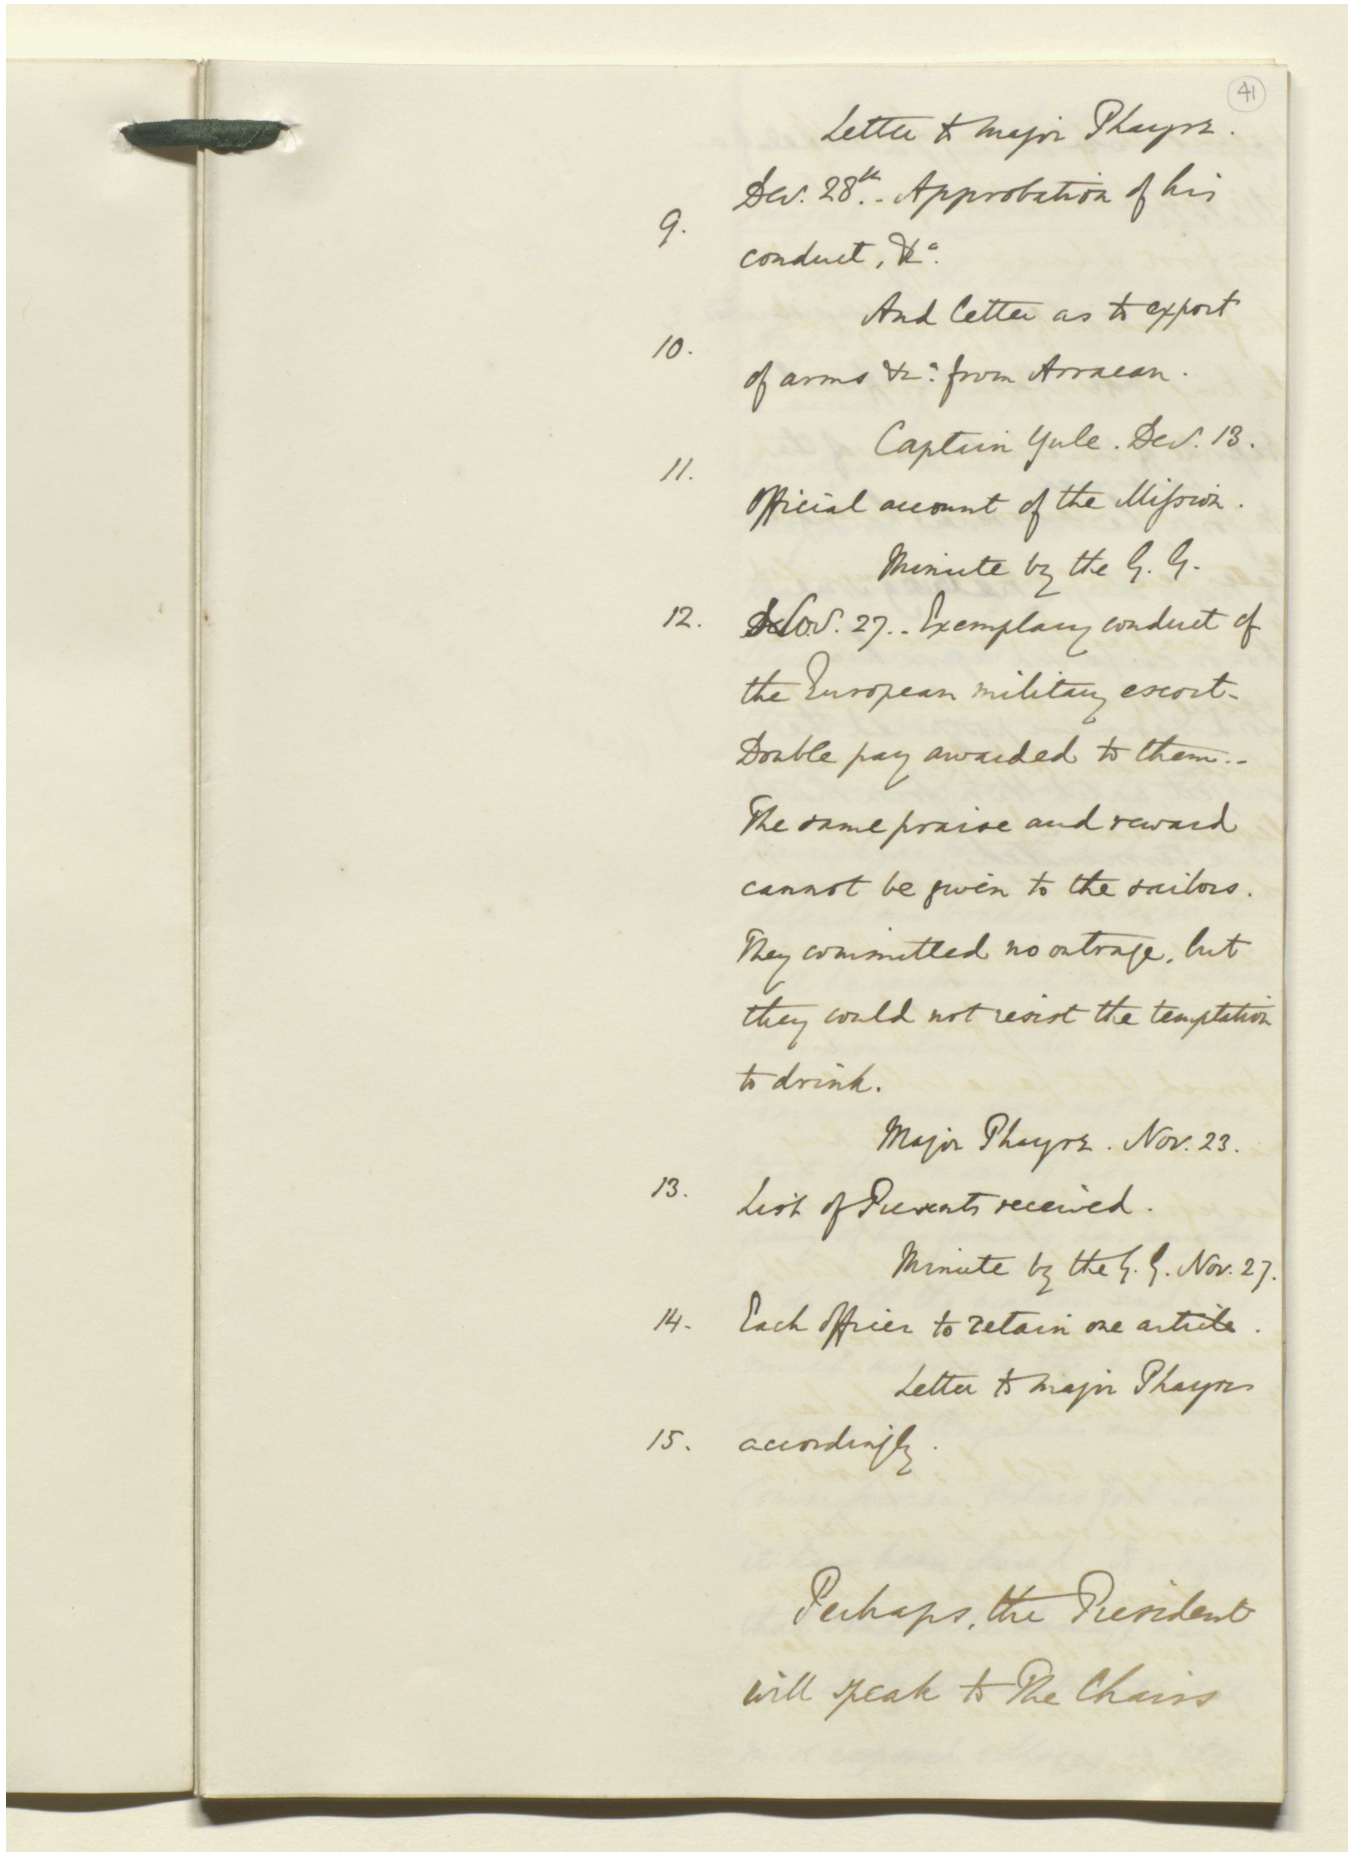 41
Letter to Major Phayre.
Dec. 28th.- Approbation of his
9.
conduct, &c.
And letter as to export
10.
of arms &c: from Arracan.
Captain Yule. Dec. 13.
11.
Official account of the Mission.
Minute by the G. G.
12. Nov. 27.- Exemplary conduct of
the European military escort-
Double pay awarded to them.-
The same praise and reward
cannot be given to the sailors.
They committed no outrage, but
they could not resist the temptation
to drink.
Major Phayre. Nov. 23.
13.
List of Presents received.
Minute by the G. G. Nov. 27.
14. Each officer to retain one article.
Letter to Major Phayre
15. accordingly.
Perhaps, the President
will speak to The Chairs